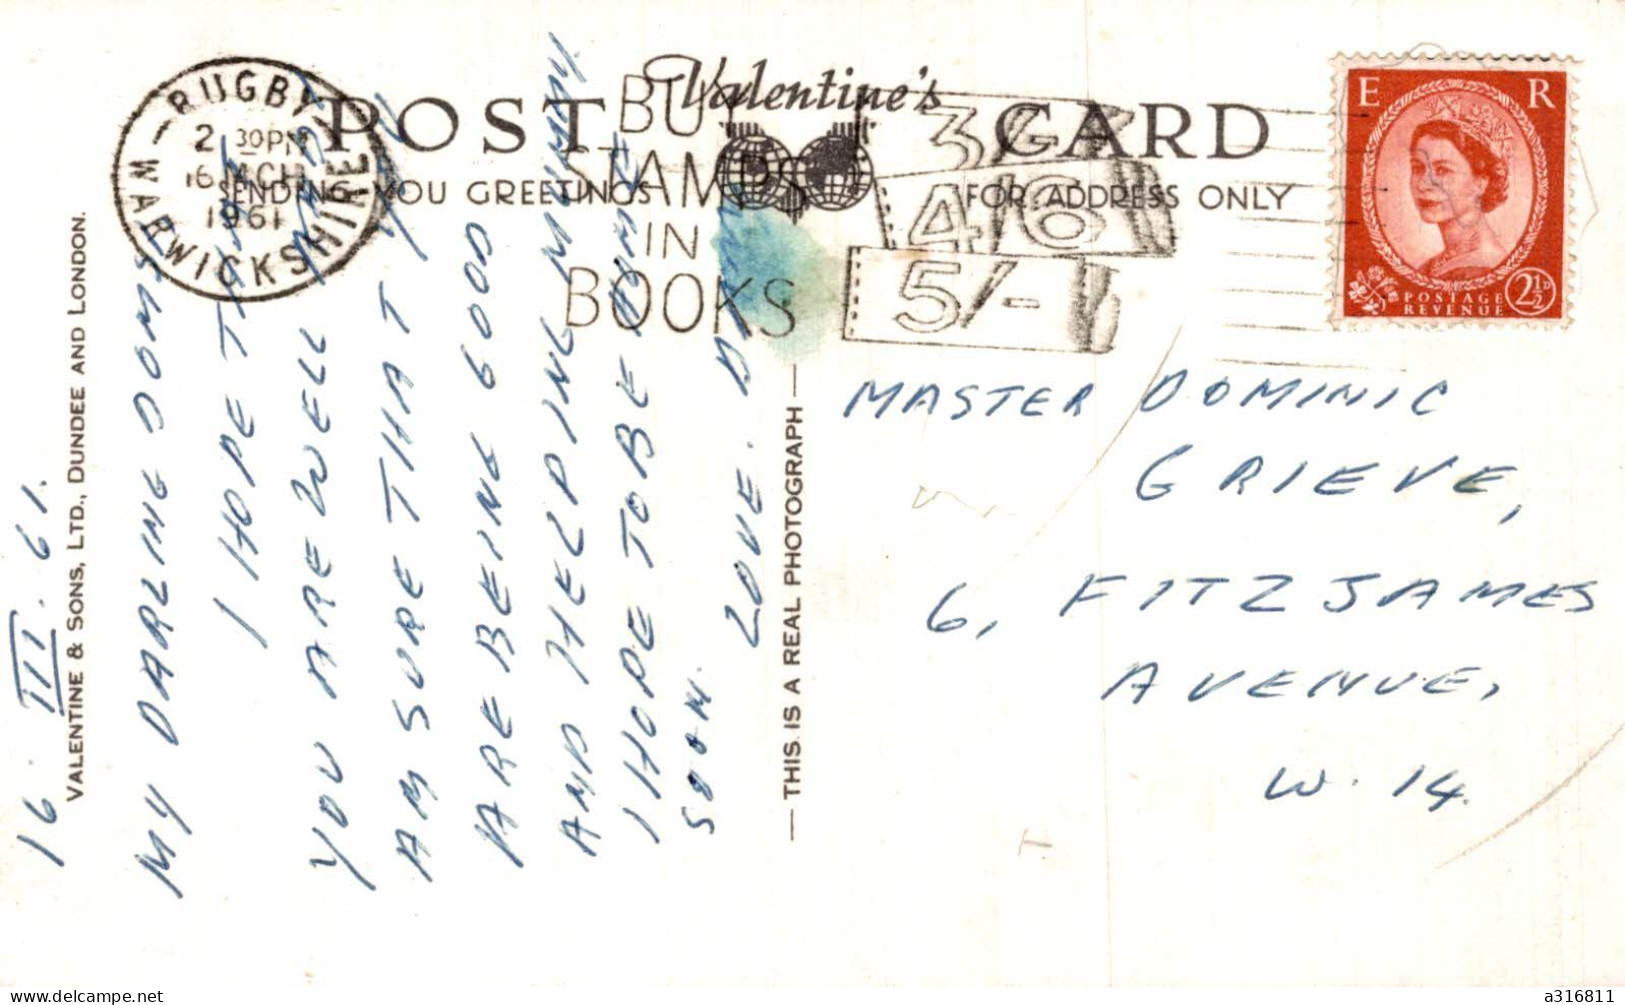 Valentine's
POST CARD
SENDING YOU GREETINGS
FOR ADDRESS ONLY
RUGBY
2 30PM
16 MCH
1961
WARWICKSHIRE
BUY
STAMPS
IN
BOOKS
3/-
4/6
5/-
E R
POSTAGE
REVENUE
2½D
VALENTINE & SONS, LTD., DUNDEE AND LONDON.
THIS IS A REAL PHOTOGRAPH
16. III. 61.
MY DARLING DOMS
I HOPE THAT
YOU ARE WELL AND I
AM SURE THAT YOU
ARE BEING GOOD
AND HELPING MUMMY.
I HOPE TO BE HOME
SOON.
LOVE.
MASTER DOMINIC
GRIEVE,
6, FITZJAMES
AVENUE,
W. 14.
delcampe.net
a316811